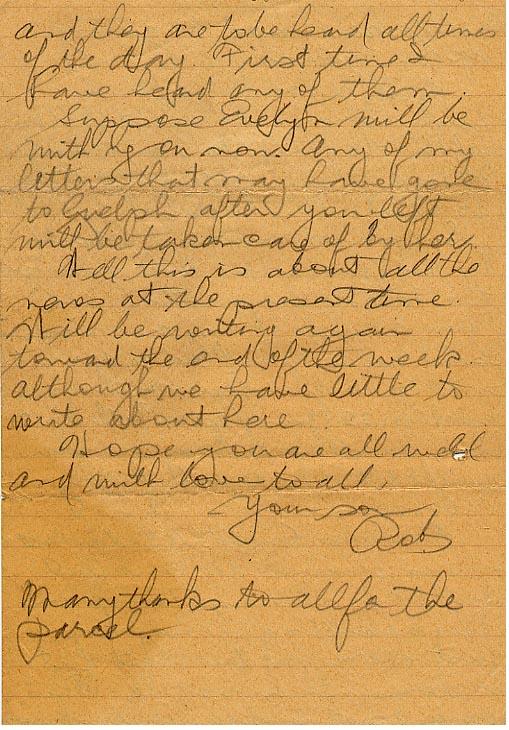 and they are to be heard all times
of the day First time I
have heard any of them.
Suppose Evelyn will be
with you now. Any of my
letters that may have gone
to Guelph after you left
will be taken care of by her.
Well this is about all the
news at the present time.
Will be writing again
toward the end of the week
although we have little to
write about here.
Hope you are all well
and with love to all.
Your son
Rob
Many thanks to all for the
parcel.